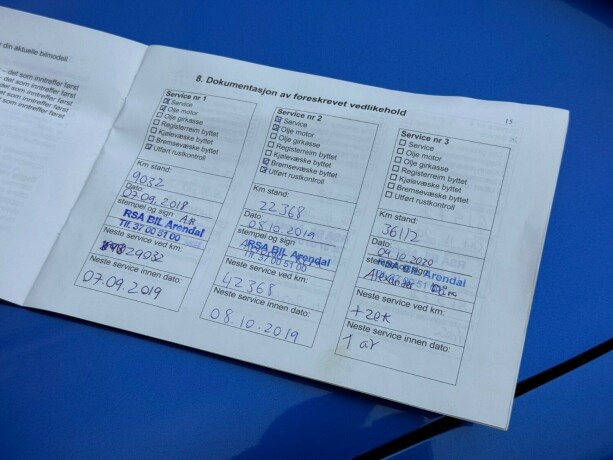 din aktuelle bilmodell.
– det som inntreffer først
– det som inntreffer først
det som inntreffer først
som inntreffer først
som inntreffer først
8. Dokumentasjon av foreskrevet vedlikehold
15
Service nr 1
Service
Olje motor
Olje girkasse
Registerreim byttet
Kjølevæske byttet
Bremsevæske byttet
Utført rustkontroll
Km stand:
9032
Dato:
07.09.2018
stempel og sign A.R
RSA BIL Arendal
Tlf. 37 00 51 00
Neste service ved km:
29032
Neste service innen dato:
07.09.2019
Service nr 2
Service
Olje motor
Olje girkasse
Registerreim byttet
Kjølevæske byttet
Bremsevæske byttet
Utført rustkontroll
Km stand:
22368
Dato:
08.10.2019
stempel og sign
RSA BIL Arendal
Tlf. 37 00 51 00
Neste service ved km:
42368
Neste service innen dato:
08.10.2019
Service nr 3
Service
Olje motor
Olje girkasse
Registerreim byttet
Kjølevæske byttet
Bremsevæske byttet
Utført rustkontroll
Km stand:
36112
Dato:
09.10.2020
stempel og sign
RSA BIL Arendal
Tlf. 37 00 51 00
Neste service ved km:
+20k
Neste service innen dato:
1 år